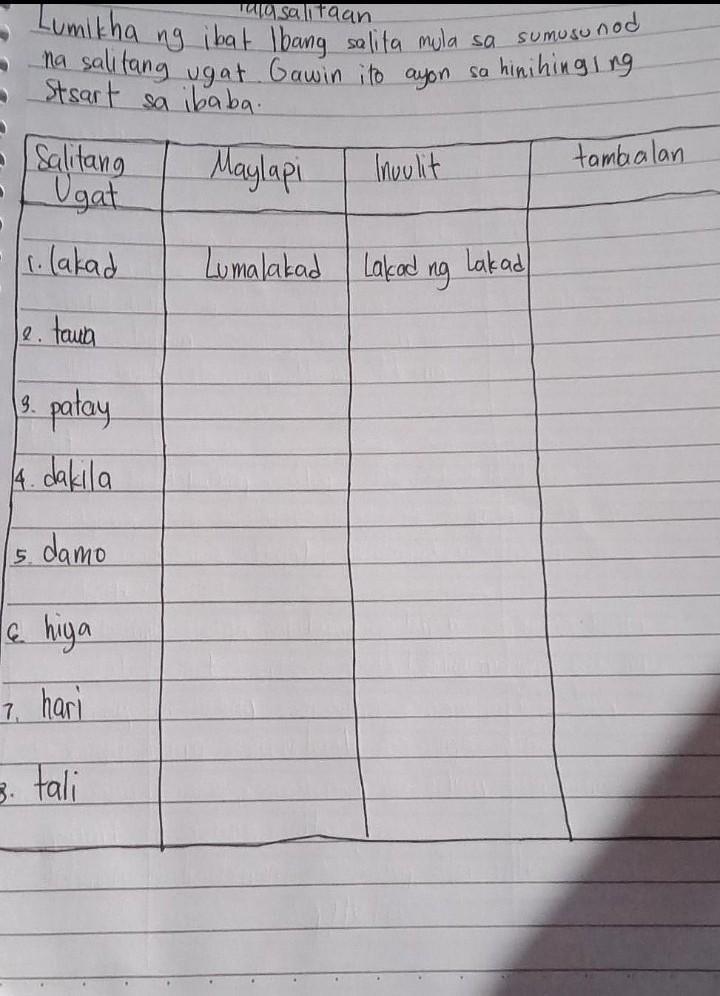 Talasalitaan
Lumikha ng ibat Ibang salita mula sa sumusunod
na salitang ugat. Gawin ito ayon sa hinihingi ng
Stsart sa ibaba.
Salitang Ugat
Maylapi
Inuulit
tambalan
1. lakad
Lumalakad
Lakad ng Lakad
2. tawa
3. patay
4. dakila
5. damo
6. hiya
7. hari
8. tali